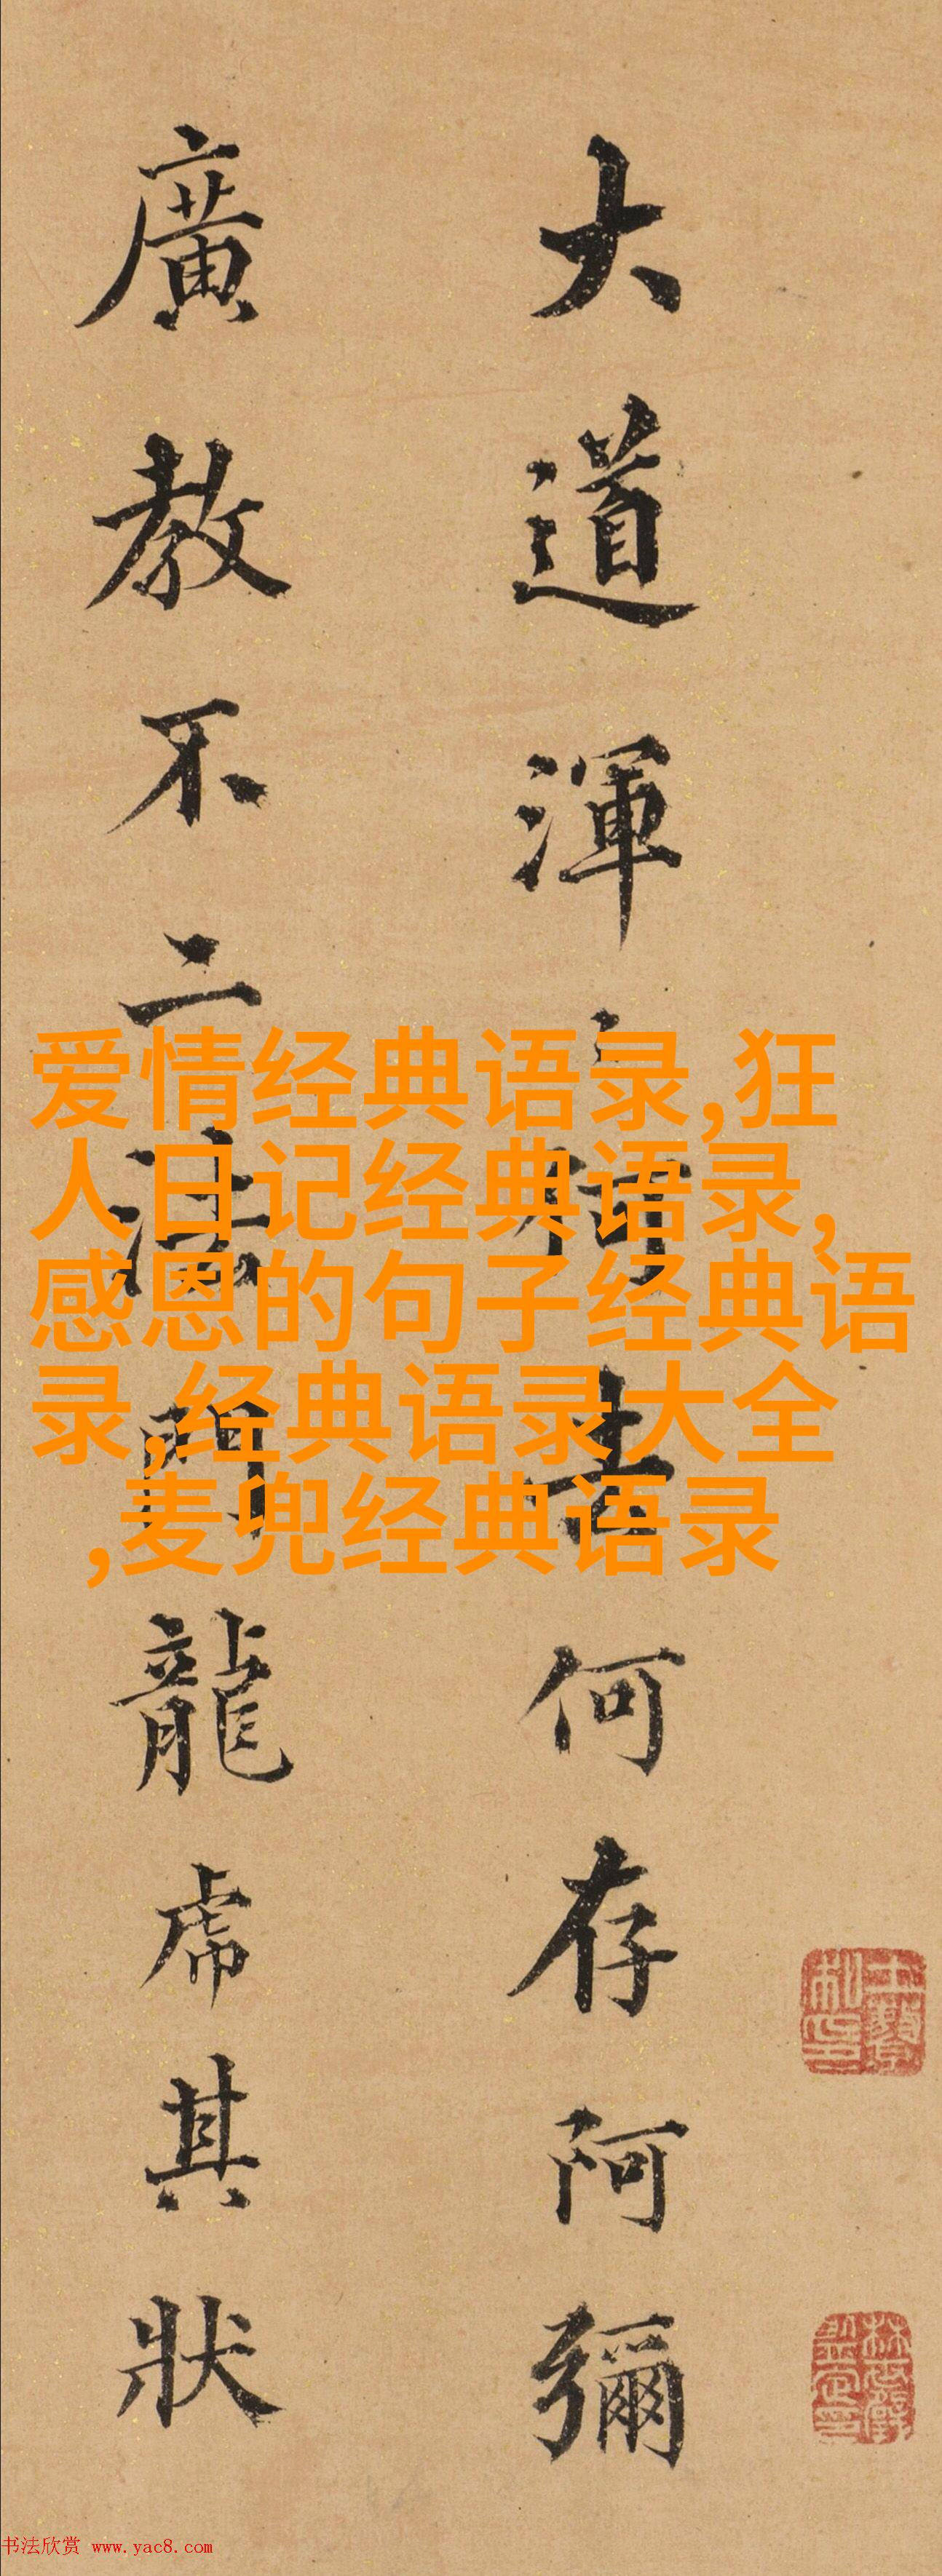 大道渾何存阿彌
廣教不二法門龍虎其狀
爱情经典语录,狂
人日记经典语录,
感恩的句子经典语
录,经典语录大全
,麦兜经典语录
书法欣赏 www.yac8.com